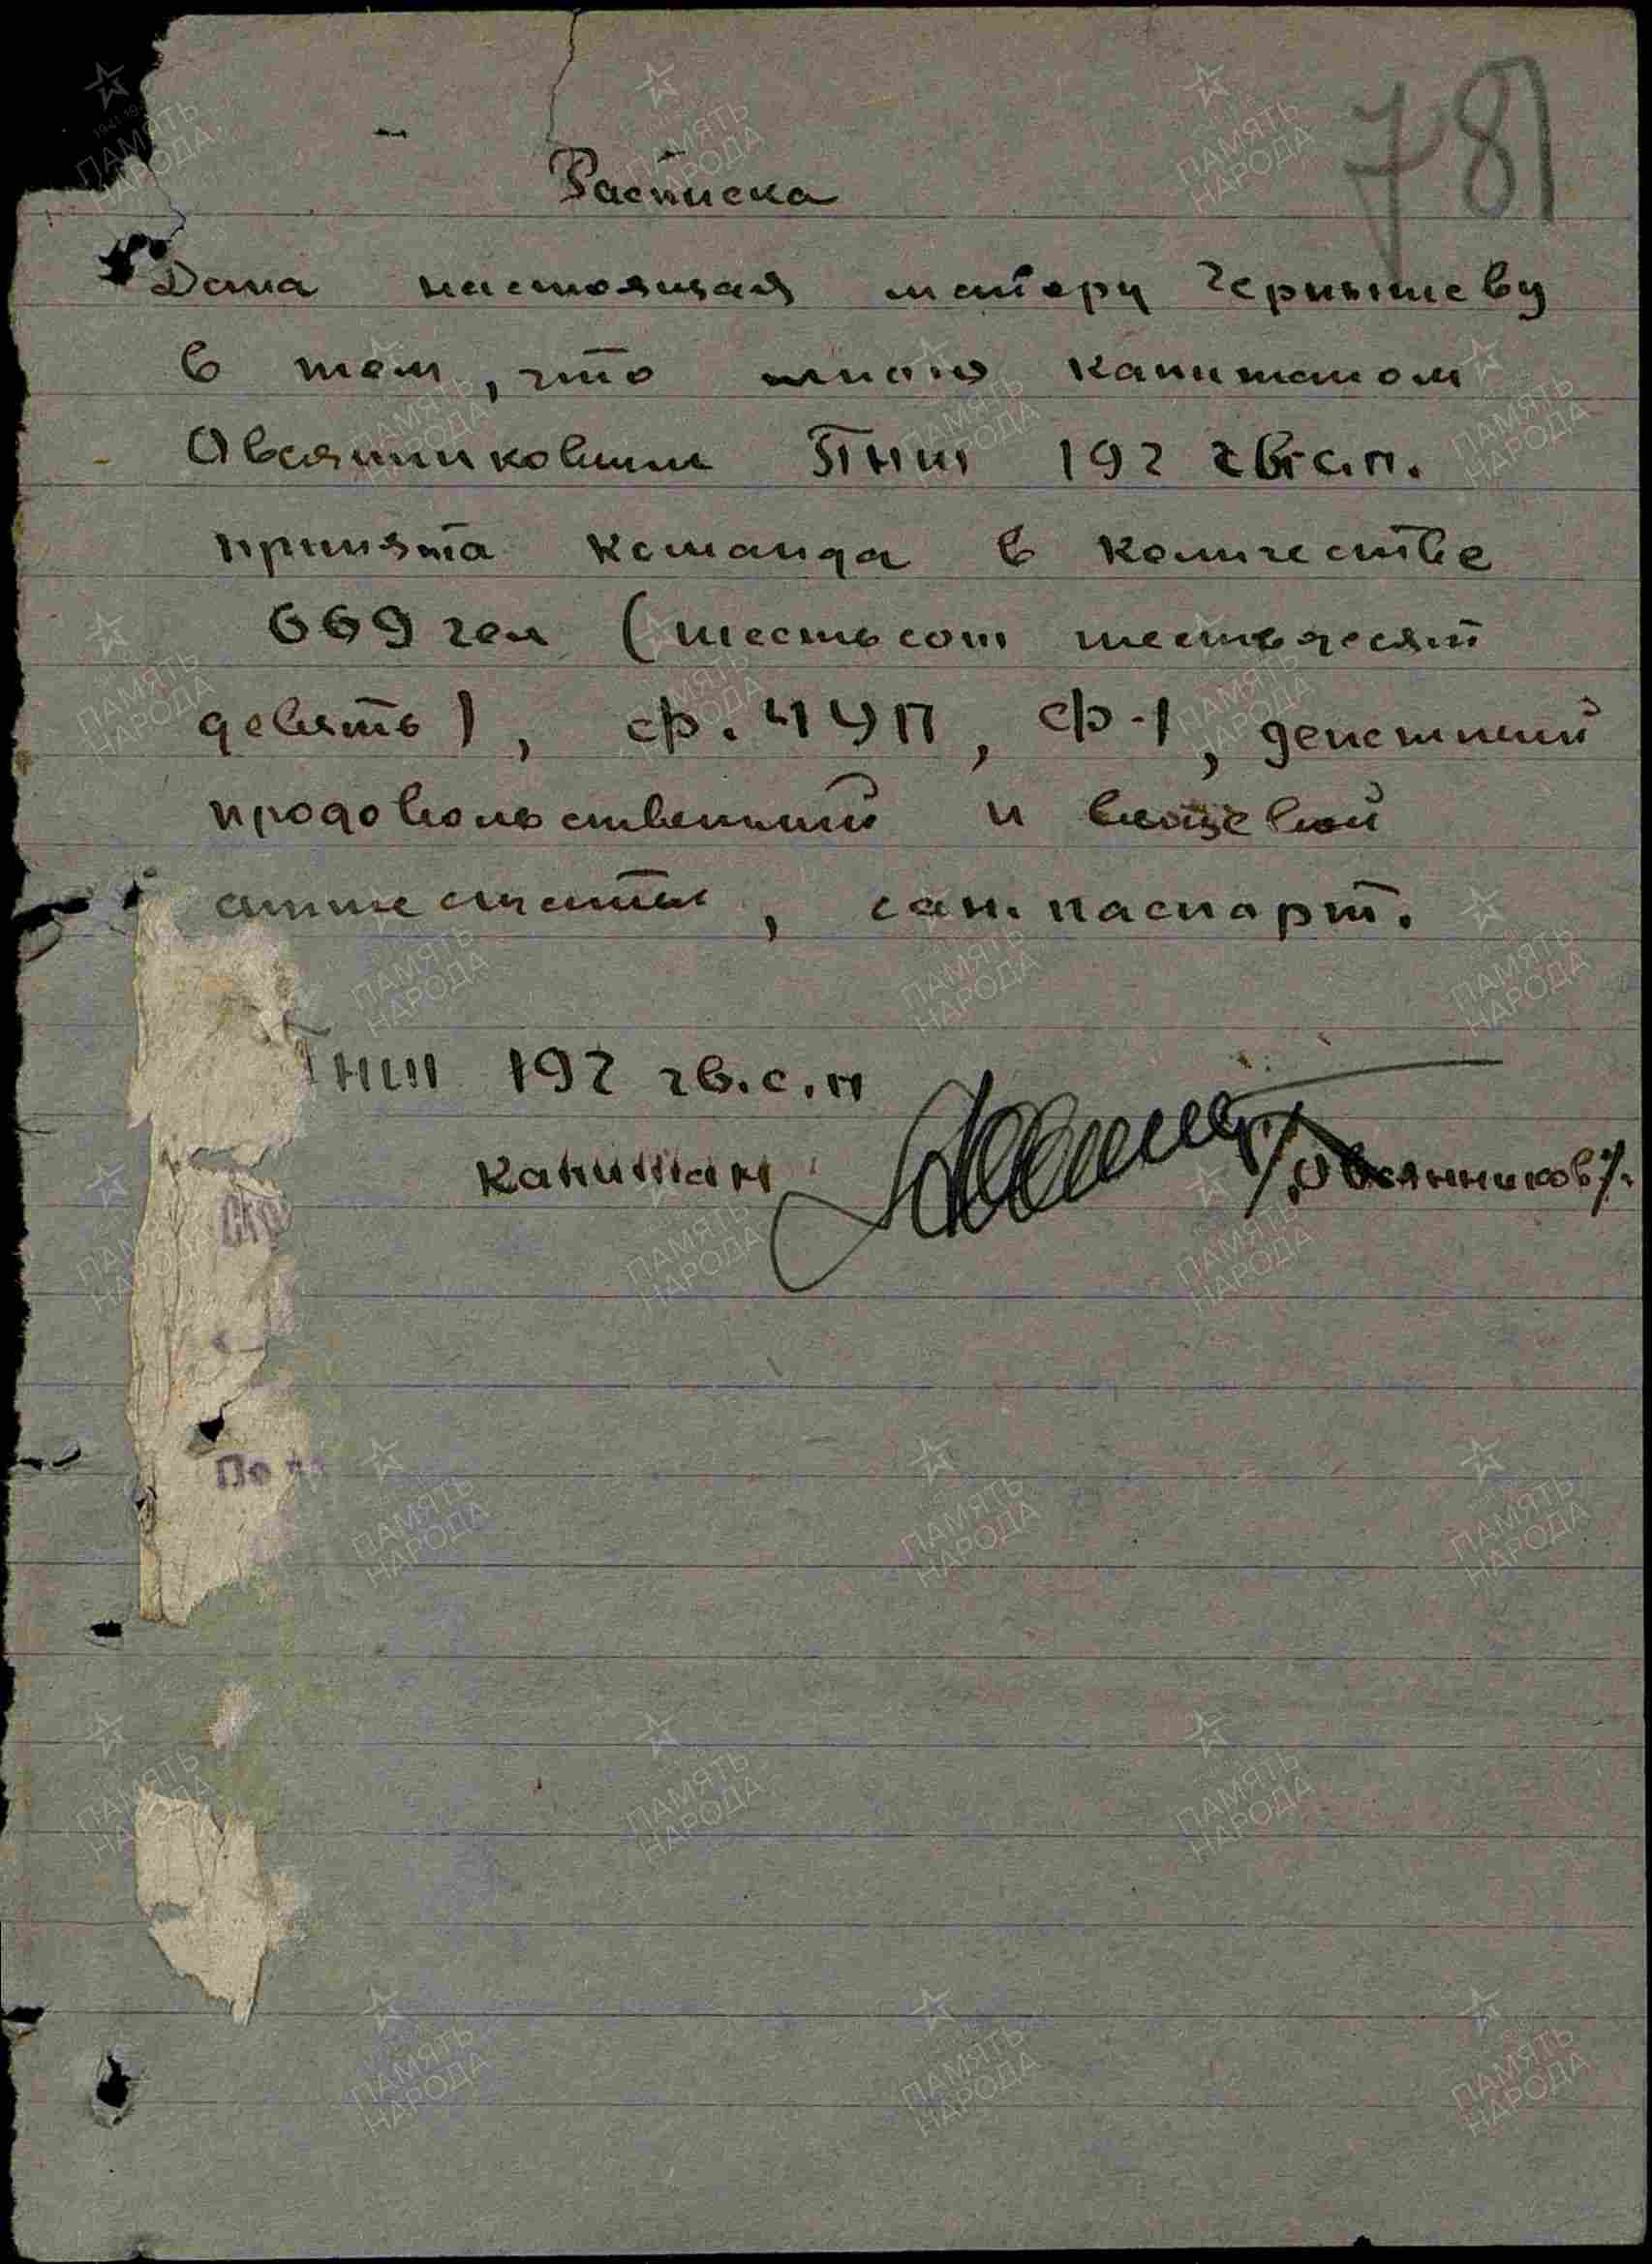 781
Расписка
Дана настоящая майору Чернышеву
в том, что мною капитаном
Овсянниковым ПНШ 192 гв.с.п.
принята команда в количестве
669 чел (шестьсот шестьдесят
девять), ф. 4УП, ф-1, денежный
продовольственный и вещевой
аттестаты, сан. паспорт.
ПНШ 192 гв.с.п
капитан /Овсянников/.
По